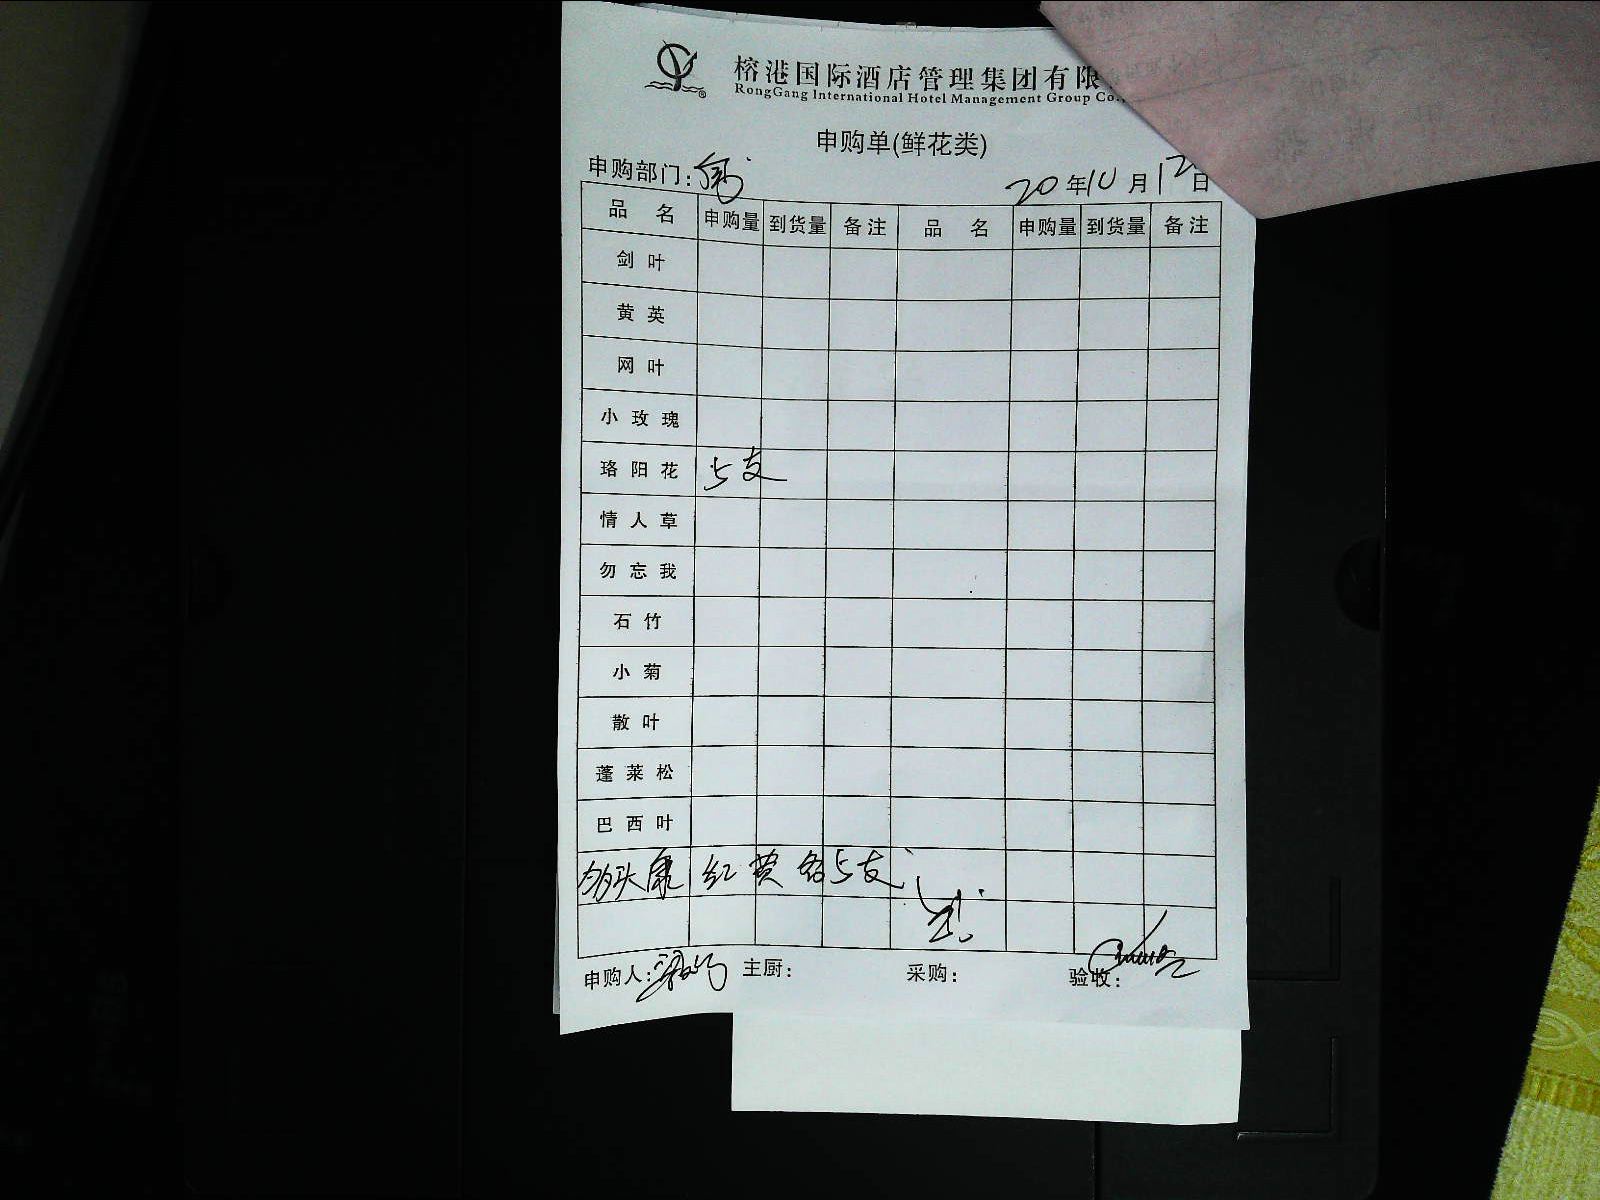 榕港国际酒店管理集团有限
RongGang International Hotel Management Group Co.,
申购单(鲜花类)
申购部门:
20年10月12日
品 名 申购量 到货量 备注 品 名 申购量 到货量 备注
剑叶
黄英
网叶
小玫瑰
珞阳花 5支
情人草
勿忘我
石竹
小菊
散叶
蓬莱松
巴西叶
多头康 红黄各5支
申购人: 主厨: 采购: 验收: